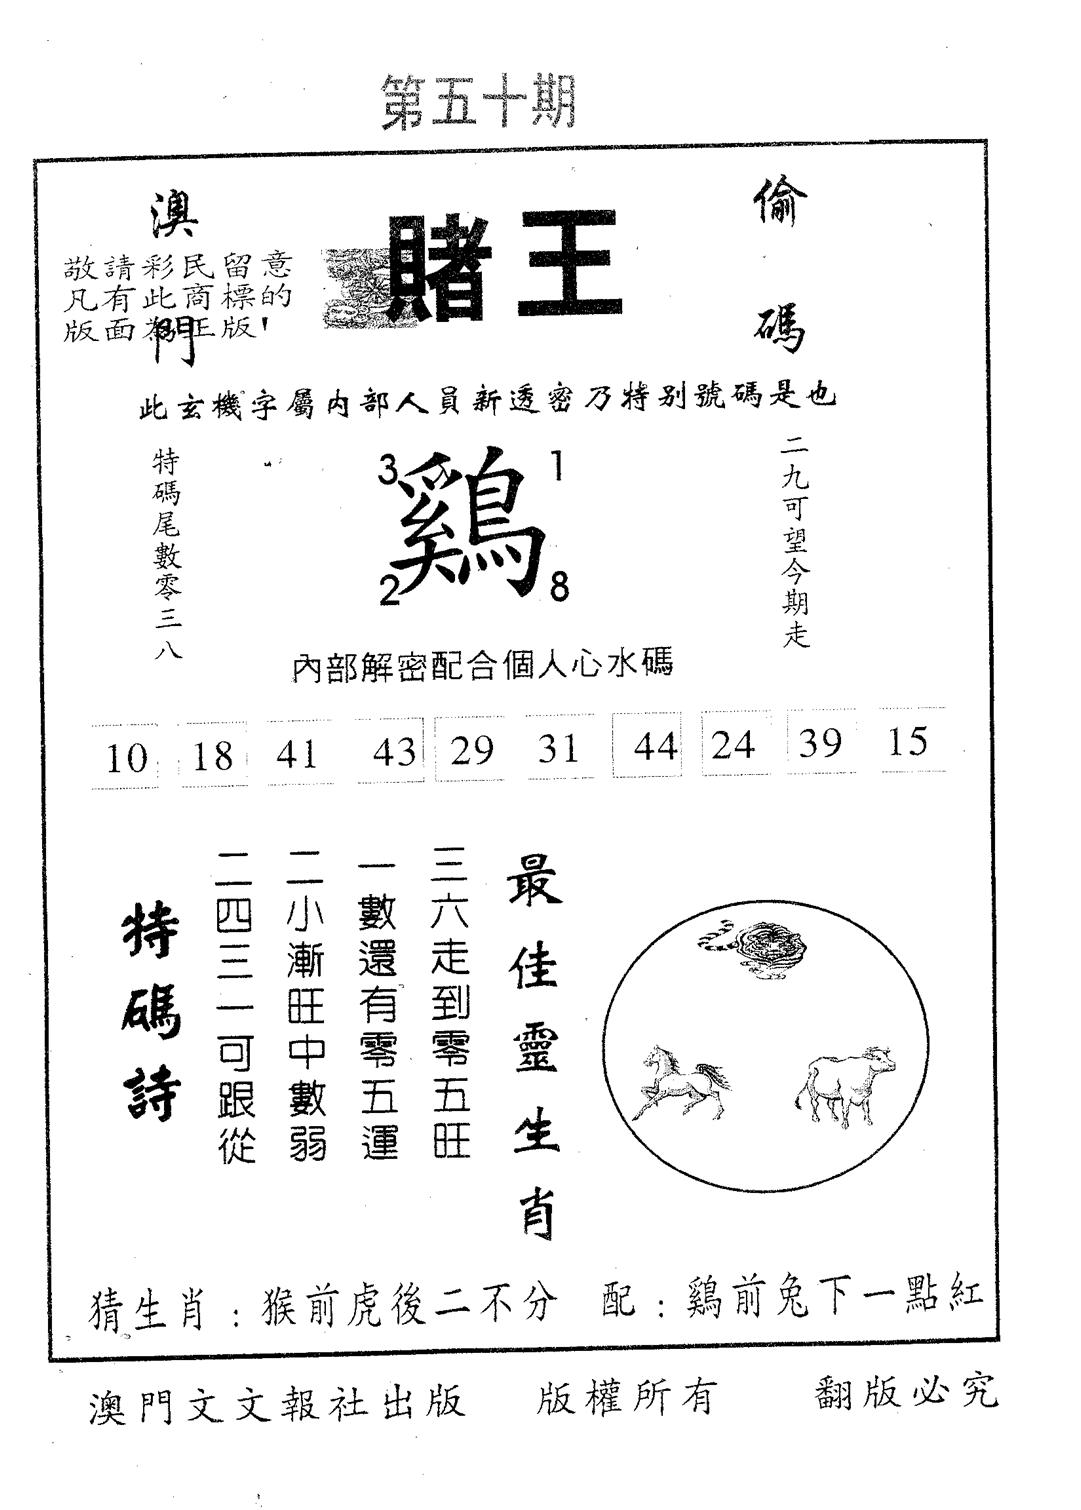 第五十期
澳門
賭王
偷碼
敬請彩民留意
凡有此商標的
版面為正版!
此玄機字屬内部人員新透密乃特别號碼是也
二九可望今期走
3 1
鷄
2 8
特碼尾數零三八
內部解密配合個人心水碼
10 18 41 43 29 31 44 24 39 15
最佳靈生肖
三六走到零五旺
一數還有零五運
二小漸旺中數弱
二四三一可跟從
特碼詩
猜生肖:猴前虎後二不分 配:鷄前兔下一點紅
澳門文文報社出版 版權所有 翻版必究